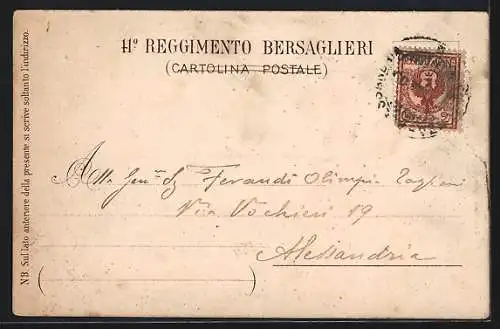 11º REGGIMENTO BERSAGLIERI
(CARTOLINA POSTALE)
Alla Gen.ª Sg Ferandi Olimpia
Via Vochieri 19
Alessandria
NB. Sul lato anteriore della presente si scrive soltanto l'indirizzo.